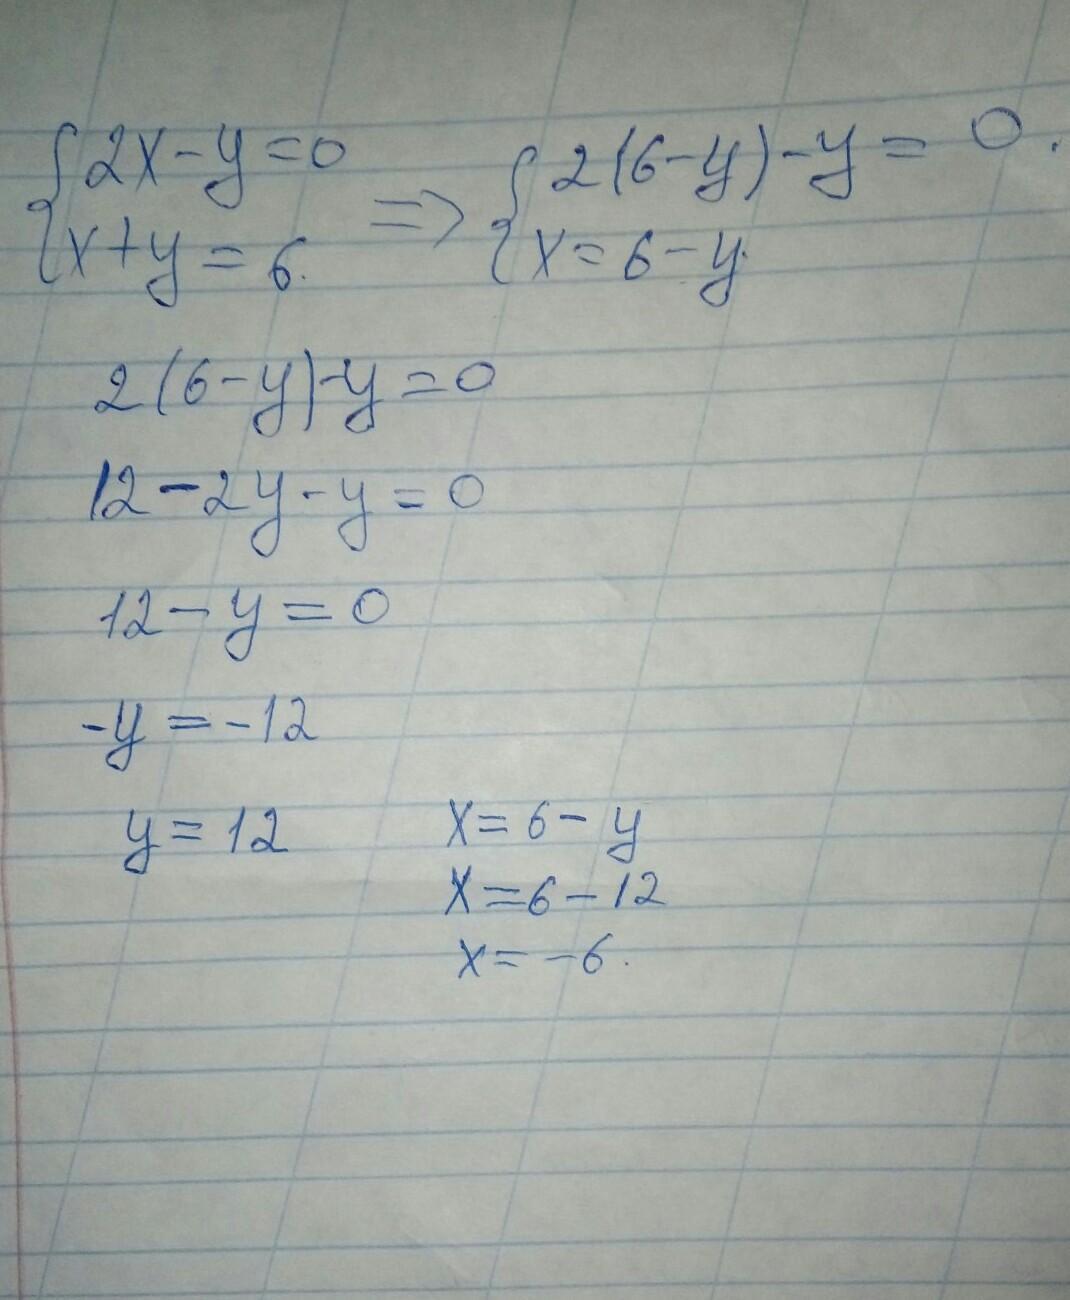 {2x-y=0 => {2(6-y)-y=0.
x+y=6. x=6-y.
2(6-y)-y=0
12-2y-y=0
12-y=0
-y=-12
y=12 x=6-y
x=6-12
x=-6.